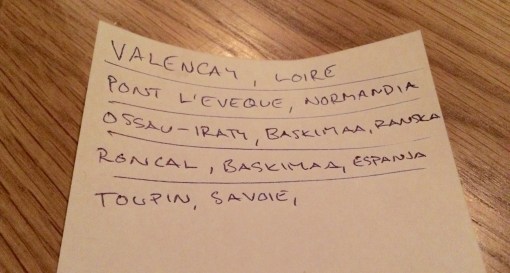 VALENCAY, LOIRE
PONT L'EVEQUE, NORMANDIA
OSSAU-IRATY, BASKIMAA, RANSKA
RONCAL, BASKIMAA, ESPANJA
TOUPIN, SAVOIE,